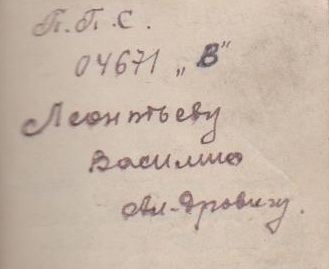 П.П.С.
04671 „В"
Леонтьеву
Василию
Ал-дровичу.